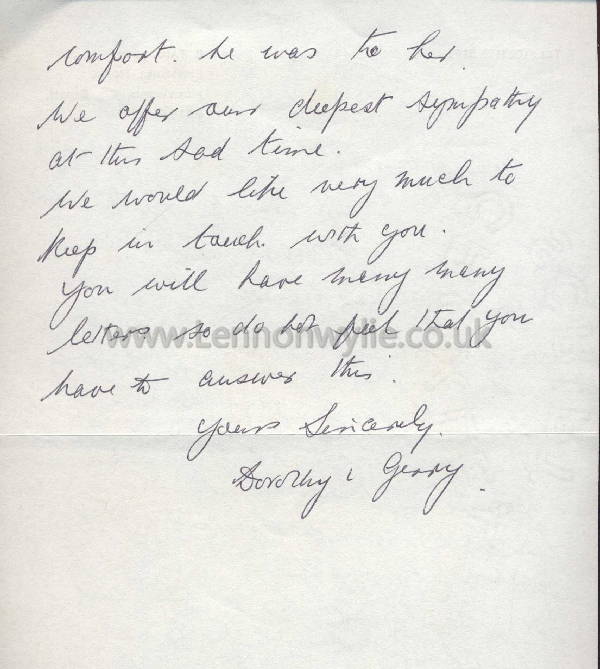 comfort. he was to her.
We offer our deepest sympathy
at this sad time.
We would like very much to
keep in touch with you.
You will have many many
letters so do not feel that you
www.Lennonwylie.co.uk
have to answer this.
Yours Sincerely.
Dorothy & Gerry.